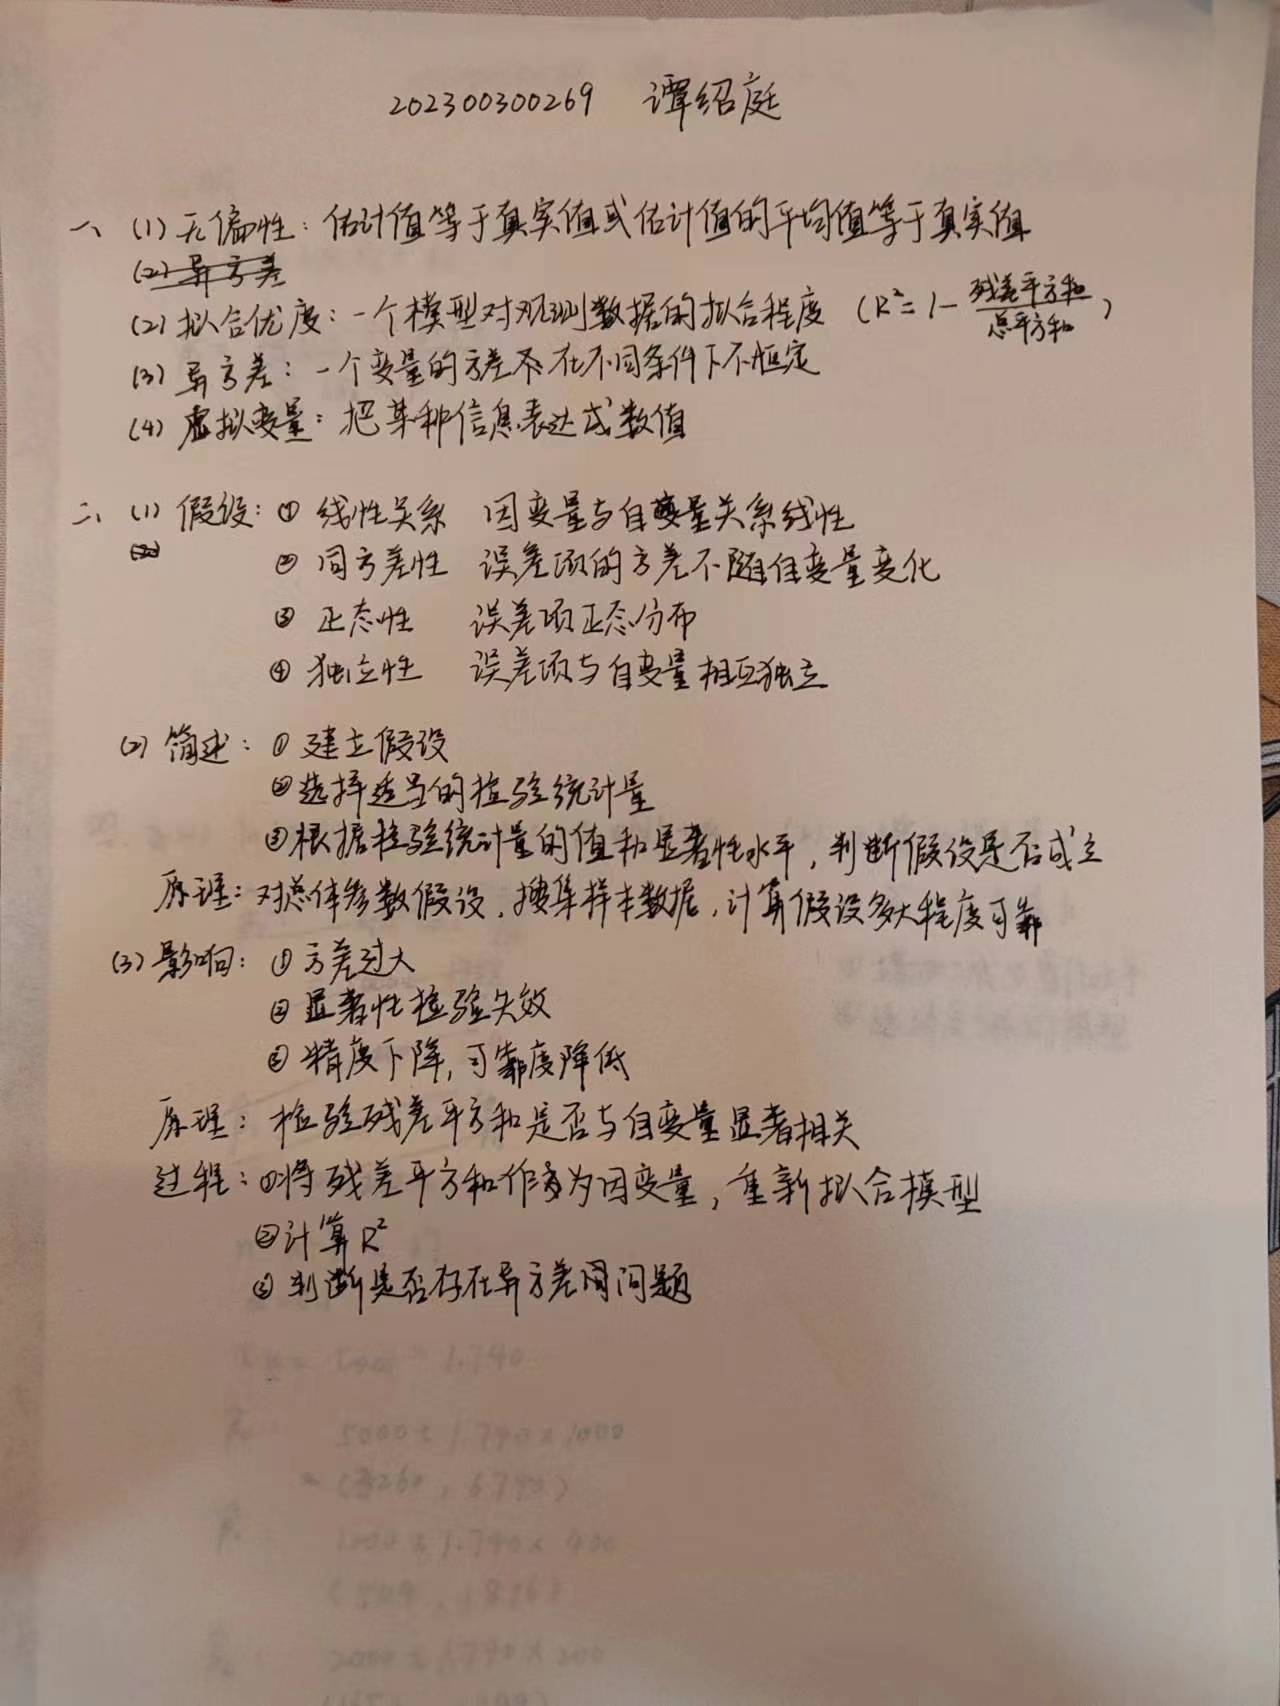 202300300269 谭绍庭
一、(1) 无偏性：估计值等于真实值或估计值的平均值等于真实值
(2) 异方差
(2) 拟合优度：一个模型对观测数据的拟合程度 (R²=1-残差平方和/总平方和)
(3) 异方差：一个变量的方差在不同条件下不恒定
(4) 虚拟变量：把某种信息表达成数值
二、(1) 假设：① 线性关系 因变量与自变量关系线性
② 同方差性 误差项的方差不随自变量变化
③ 正态性 误差项正态分布
④ 独立性 误差项与自变量相互独立
(2) 简述：① 建立假设
②选择适当的检验统计量
③根据检验统计量的值和显著性水平，判断假设是否成立
原理：对总体参数假设，搜集样本数据，计算假设多大程度可靠
(3) 影响：① 方差过大
② 显著性检验失效
③ 精度下降，可靠度降低
原理：检验残差平方和是否与自变量显著相关
过程：①将残差平方和作为因变量，重新拟合模型
②计算R²
③判断是否存在异方差问题